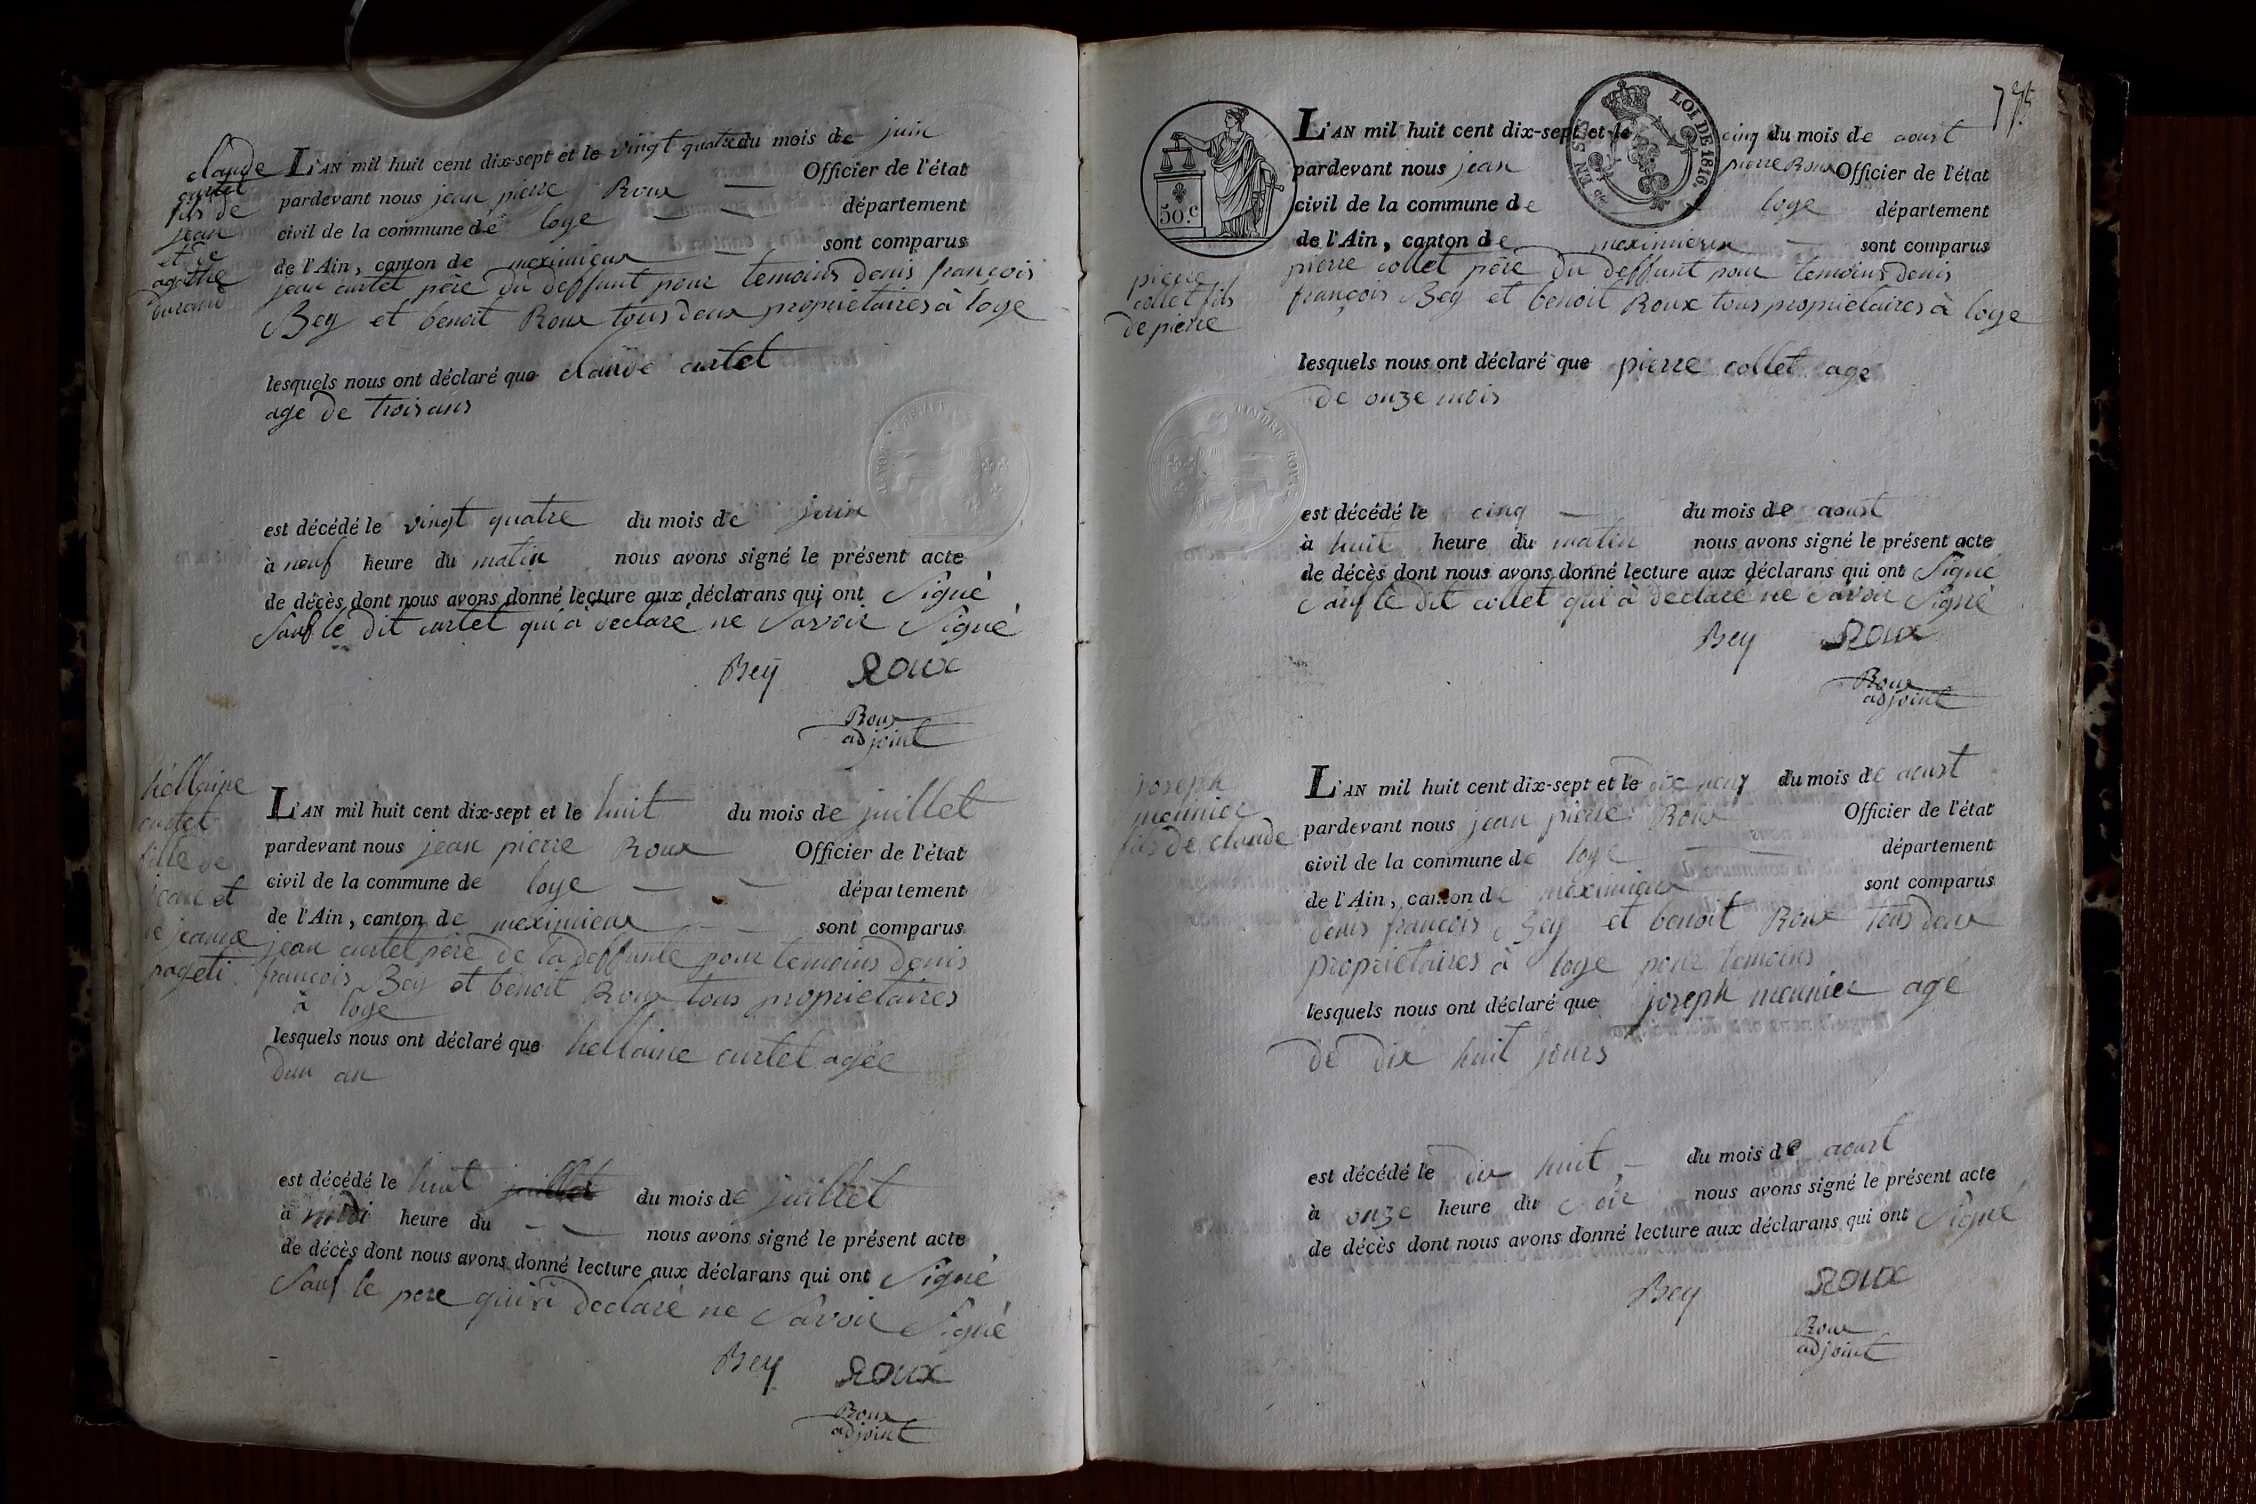 claude
curtet
fils de
jean
et de
agathe
durand
L'AN mil huit cent dix-sept et le vingt quatre du mois de juin
pardevant nous jean pierre Roux — Officier de l'état
civil de la commune de loye — — département
de l'Ain, canton de meximieux — sont comparus
jean curtet père du deffunt pour temoins denis françois
Bey et benoit Roux tous deux propriétaires à loye
lesquels nous ont déclaré que claude curtet
age de trois ans
est décédé le vingt quatre du mois de juin
à neuf heure du matin nous avons signé le présent acte
de décès dont nous avons donné lecture aux déclarans qui ont Signé
Sauf le dit curtet qui a declaré ne Savoir Signé
Bey Roux
Roux
adjoint
hellaine
curtet
fille de
jean et
de jeanne
pageti
L'AN mil huit cent dix-sept et le huit du mois de juillet
pardevant nous jean pierre Roux Officier de l'état
civil de la commune de loye — — département
de l'Ain, canton de meximieux — — sont comparus
jean curtet père de la deffunte pour temoins denis
françois Bey et benoit Roux tous propriétaires
à loye
lesquels nous ont déclaré que hellaine curtet agée
dun an
est décédé le huit juillet du mois de juillet
à midi heure du — — nous avons signé le présent acte
de décès dont nous avons donné lecture aux déclarans qui ont Signé
Sauf le pere qui a declaré ne Savoir Signé
Bey Roux
Roux
adjoint
50.c
LOI DE 1816
TIMBRE ROYAL
pierre
collet fils
de pierre
L'AN mil huit cent dix-sept et le cinq du mois de aoust
pardevant nous jean pierre Roux Officier de l'état
civil de la commune de loye département
de l'Ain, canton de meximieux — sont comparus
pierre collet père du deffunt pour temoins denis
françois Bey et benoit Roux tous propriétaires à loye
lesquels nous ont déclaré que pierre collet age
de onze mois
est décédé le cinq — du mois de aoust
à huit heure du matin nous avons signé le présent acte
de décès dont nous avons donné lecture aux déclarans qui ont Signé
Sauf le dit collet qui à declaré ne Savoir Signé
Bey Roux
Roux
adjoint
joseph
meunier
fils de claude
L'AN mil huit cent dix-sept et le dix neuf du mois de aoust
pardevant nous jean pierre Roux Officier de l'état
civil de la commune de loye — département
de l'Ain, canton de meximieux sont comparus
denis françois Bey et benoit Roux tous deux
propriétaires à loye pour temoins
lesquels nous ont déclaré que joseph meunier agé
de dix huit jours
est décédé le dix huit — du mois de aoust
à onze heure du soir nous avons signé le présent acte
de décès dont nous avons donné lecture aux déclarans qui ont Signé
Bey Roux
Roux
adjoint